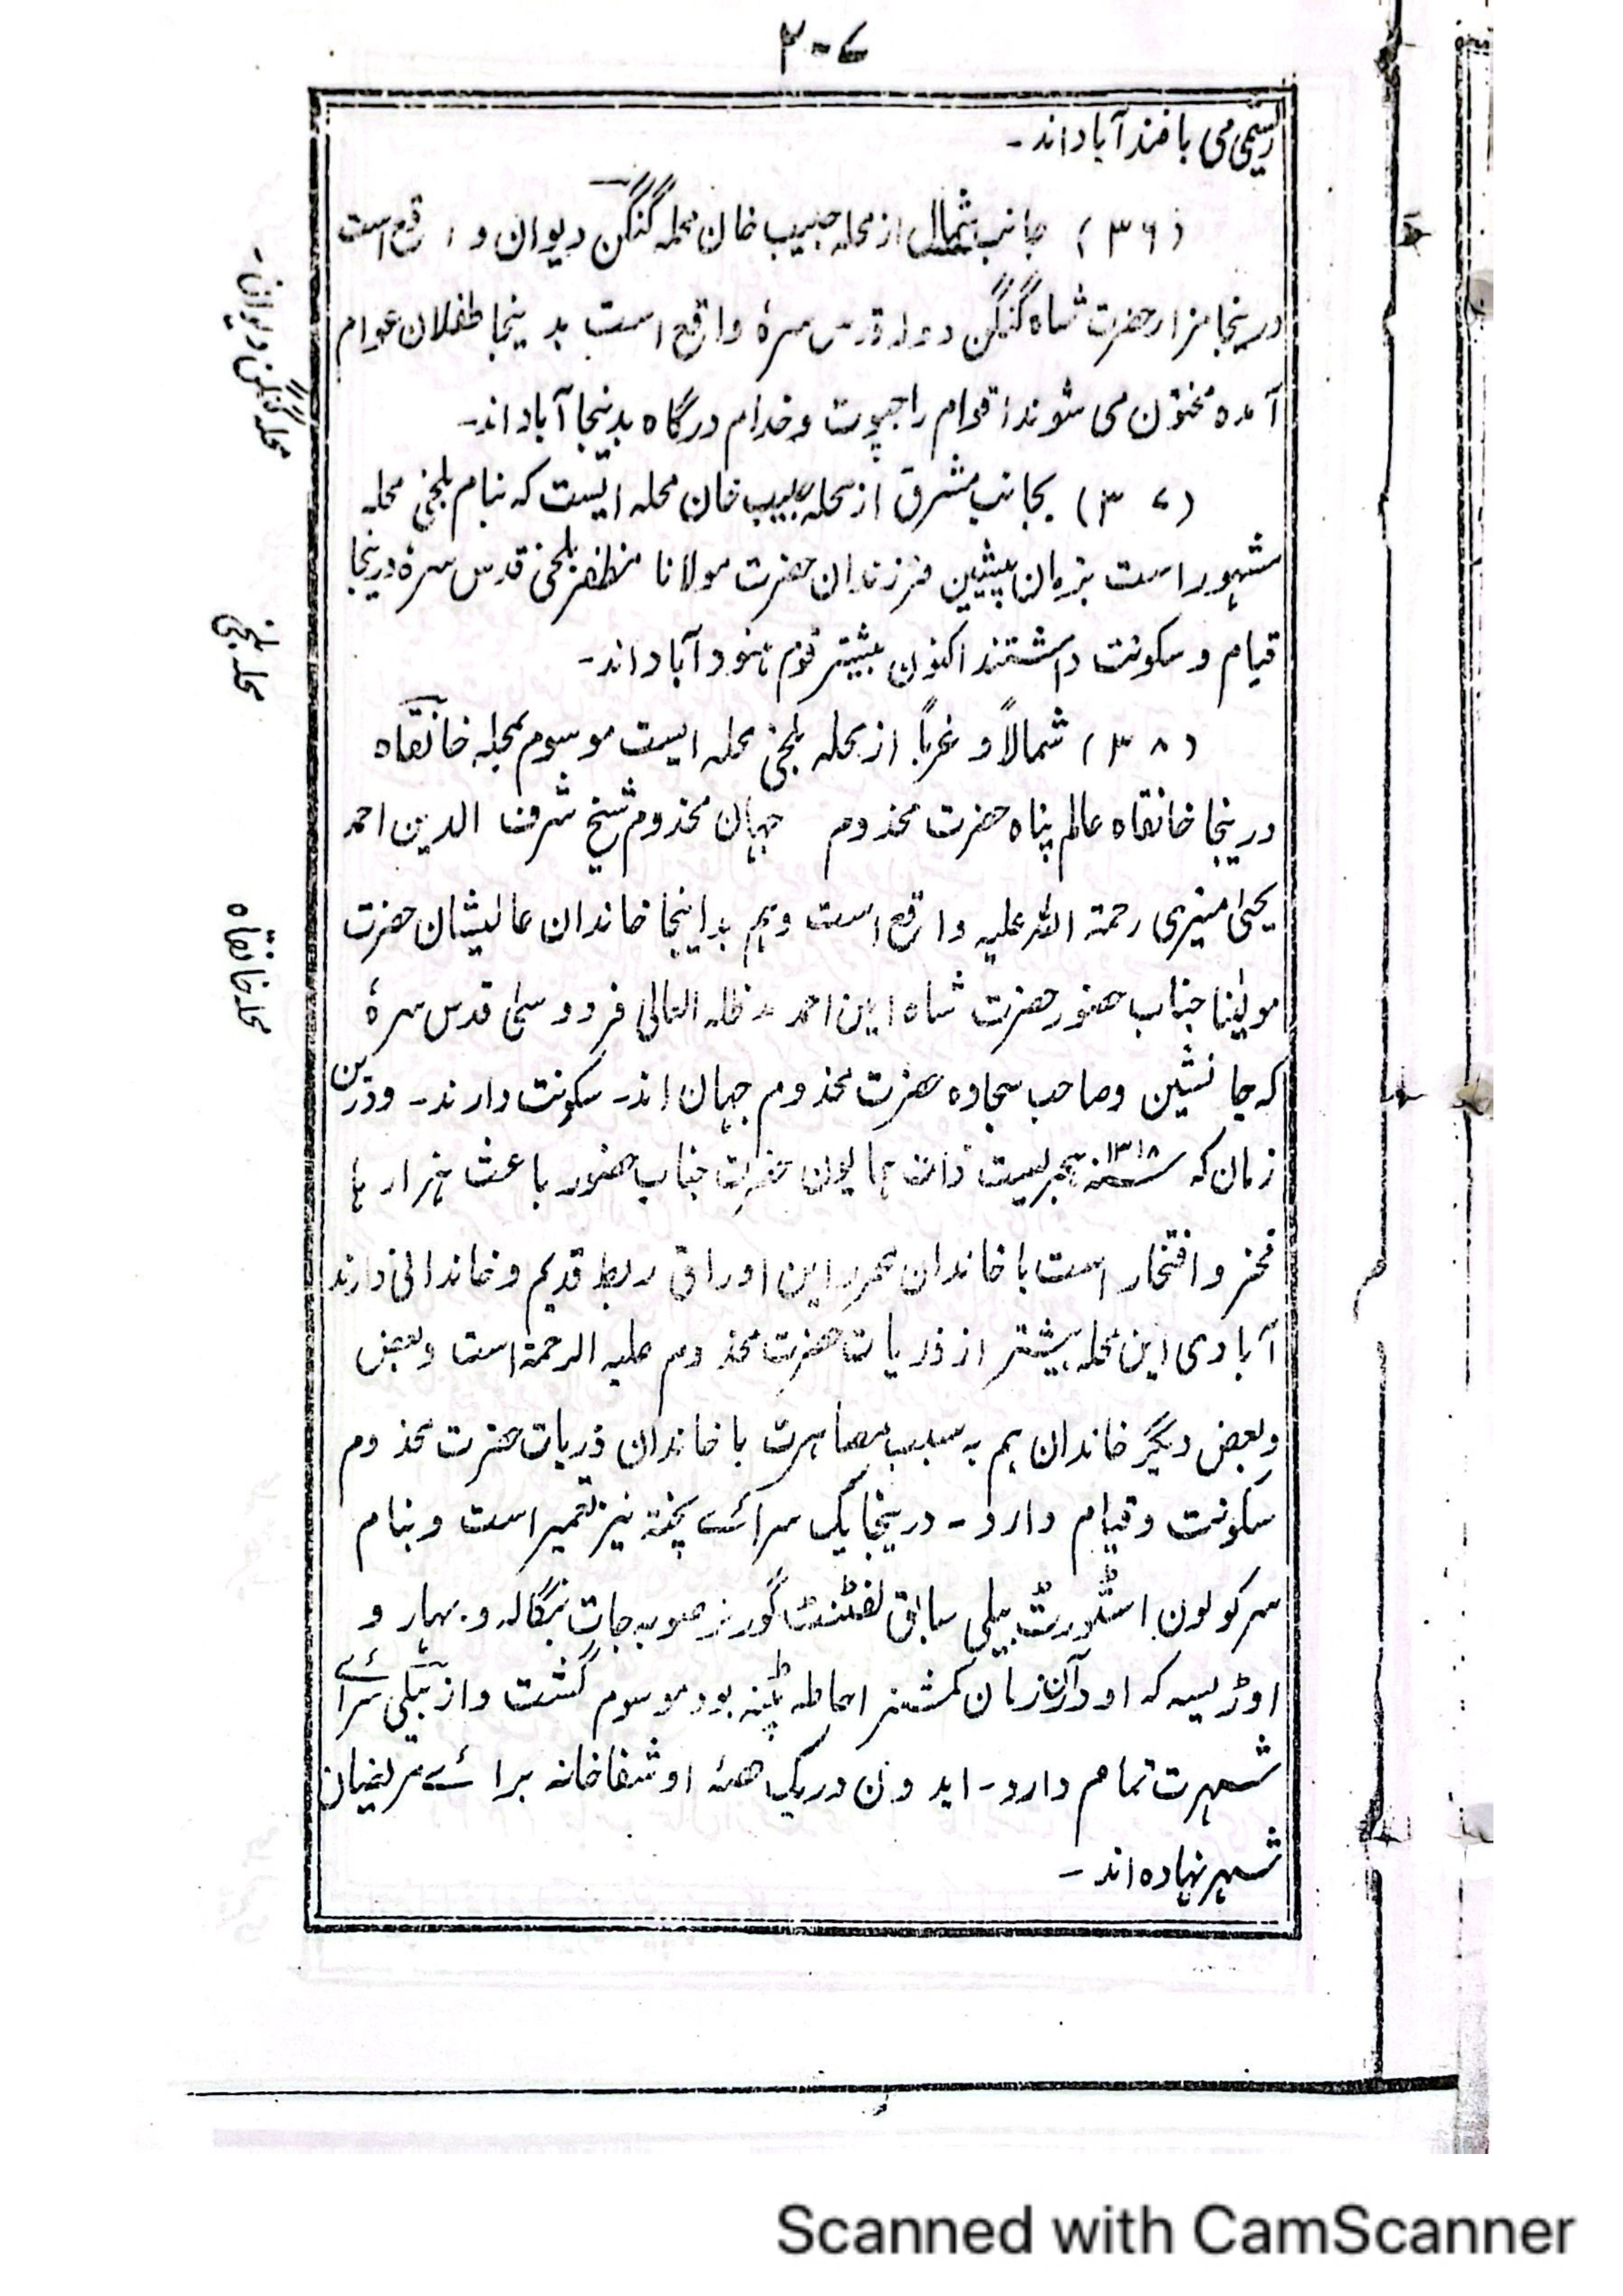 ۲۰۷
ریشمی می بافند آباد اند۔
(۳۶) جانب شمال از محلہ حبیب خان محلہ گنگن دیوان واقع است
محلہ گنگن دیوان۔
درینجا مزار حضرت شاہ گنگن دیوان قدس سرہٗ واقع است بدینجا طفلان عوام
آمدہ مختون می شوند اقوام راجپوت و خدام درگاہ بدینجا آباد اند۔
(۳۷) بجانب مشرق از محلہ حبیب خان محلہ ایست کہ بنام بلخی محلہ
مشہور است بزمان پیشین فرزندان حضرت مولانا مظفر بلخی قدس سرہٗ درینجا
محلہ بلخی
قیام و سکونت داشتند اکنون بیشتر قوم ہنود آباد اند۔
(۳۸) شمالاً و غرباً از محلہ بلخی محلہ ایست موسوم بمحلہ خانقاہ
درینجا خانقاہ عالم پناہ حضرت مخدوم جہان مخدوم شیخ شرف الدین احمد
یحییٰ منیری رحمۃ اللہ علیہ واقع است وہم بداینجا خاندان عالیشان حضرت
محلہ خانقاہ
مولینا جناب حضور حضرت شاہ امین احمد مدظلہ العالی فردوسی قدس سرہٗ
کہ جانشین و صاحب سجادہ حضرت مخدوم جہان اند۔ سکونت دارند۔ ودرین
زمان کہ ۱۳۱۸؁ہجریست ذات ہمایون حضرت جناب حضور باعث ہزارہا
فخر و افتخار است با خاندان محرر این اوراق ربط قدیم و خاندانی دارند
آبادی این محلہ بیشتر از ذریات حضرت مخدوم علیہ الرحمۃ است وبعض
وبعض دیگر خاندان ہم بہ سبب مصاہرت با خاندان ذریات حضرت مخدوم
سکونت و قیام دارد۔ درینجا یک سرائے پختہ نیز تعمیر است و بنام
سر کولون اسٹورٹ بیلی سابق لفٹنٹ گورنر صوبہ جات بنگالہ و بہار و
اوڑیسہ کہ او دران زمان کمشنر احاطہ پٹنہ بود موسوم گشت و از بیلی سرائے
شہرت تمام دارد۔ ایدون در یک حصہ او شفاخانہ برائے مریضان
شہر نہادہ اند۔
Scanned with CamScanner